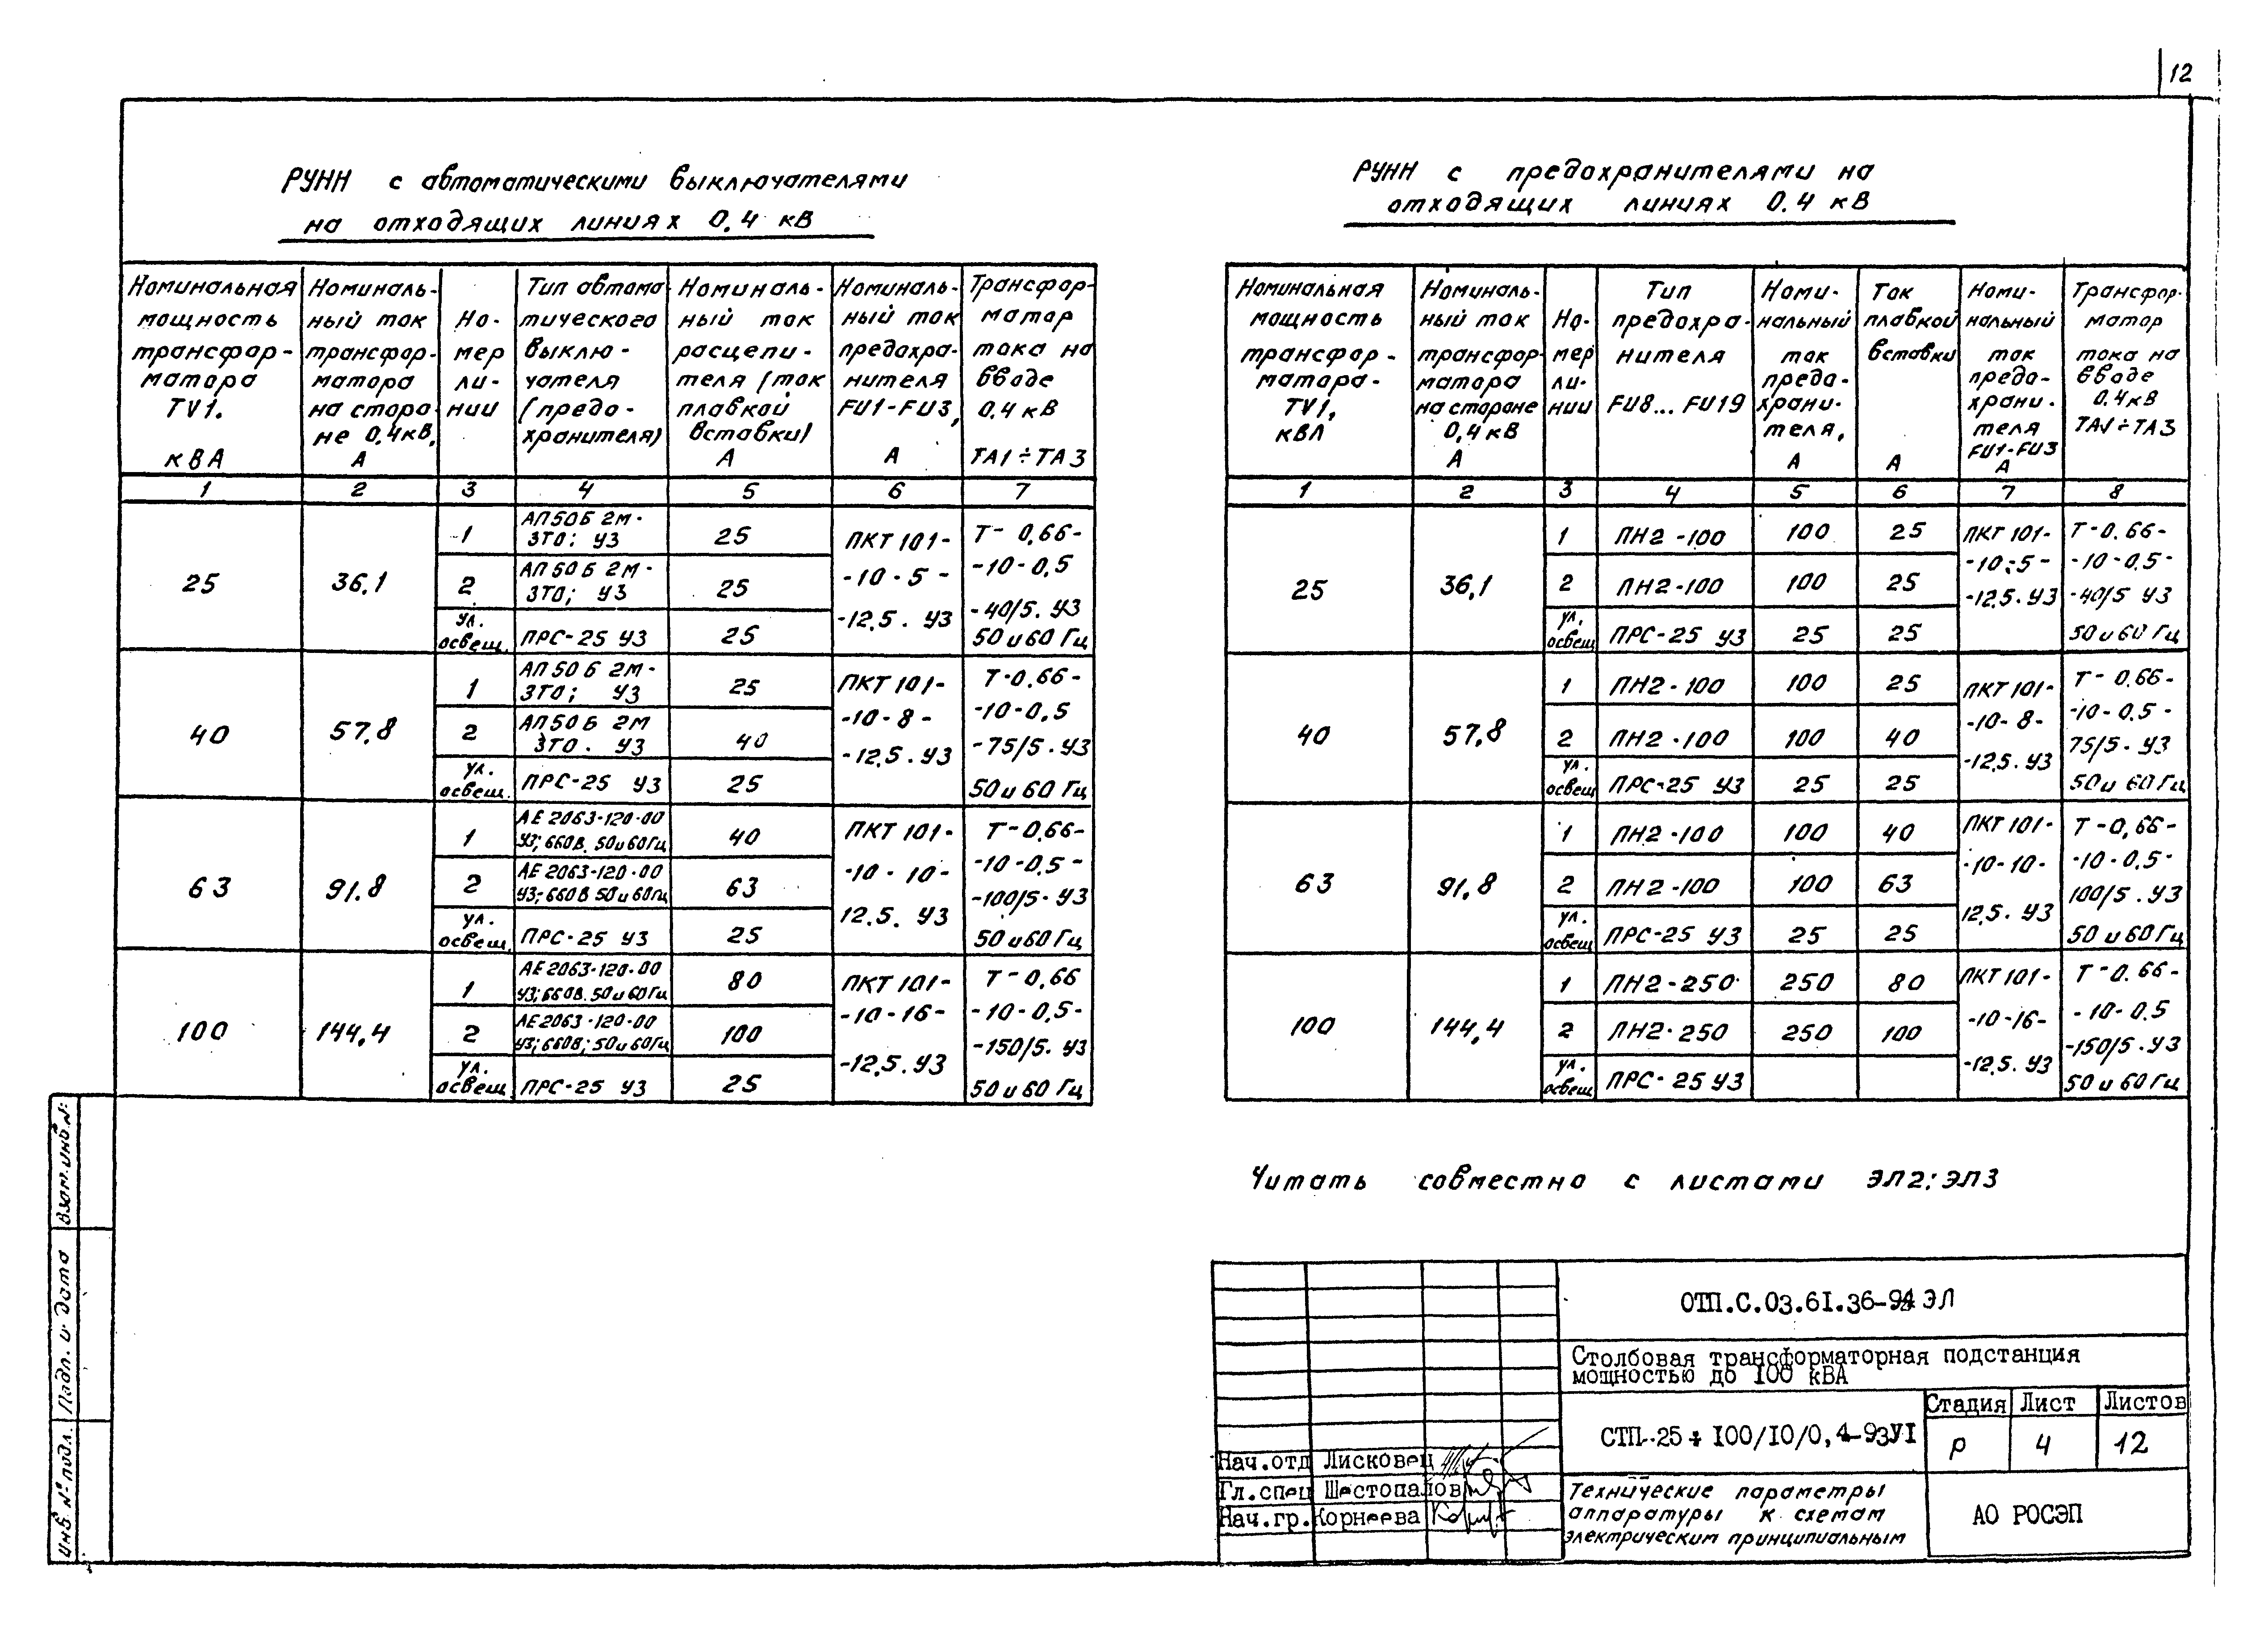 12
РУНН с автоматическими выключателями
на отходящих линиях 0.4 кВ
Номинальная мощность трансфор-матора TV1. кВА
Номиналь-ный ток трансфор-матора на сторо-не 0,4кВ, А
Но-мер ли-нии
Тип автома тического выклю-чателя (предо-хранителя)
Номиналь-ный ток расцепи-теля (ток плавкой вставки) А
Номиналь-ный ток предохра-нителя FU1-FU3, А
Трансфор-матор тока на вводе 0.4 кВ ТА1÷ТА3
1 2 3 4 5 6 7
25 36.1 ПКТ 101- -10-5- -12,5. У3 Т-0,66- -10-0,5 -40/5. У3 50 и 60 Гц
1 АП50Б 2М- 3ТО; У3 25
2 АП50Б 2М- 3ТО; У3 25
ул. освещ. ПРС-25 У3 25
40 57.8 ПКТ 101- -10-8- -12,5. У3 Т-0.66- -10-0,5 -75/5. У3 50 и 60 Гц
1 АП50Б 2М- 3ТО; У3 25
2 АП50Б 2М 3ТО. У3 40
ул. освещ. ПРС-25 У3 25
63 91.8 ПКТ 101- -10-10- 12.5. У3 Т-0.66- -10-0,5- -100/5. У3 50 и 60 Гц
1 АЕ 2063-120-00 У3; 660В. 50 и 60Гц 40
2 АЕ 2063-120-00 У3; 660В 50 и 60Гц 63
ул. освещ. ПРС-25 У3 25
100 144,4 ПКТ 101- -10-16- -12,5. У3 Т-0,66 -10-0,5- -150/5. У3 50 и 60 Гц
1 АЕ 2063-120-00 У3; 660В. 50 и 60Гц 80
2 АЕ 2063-120-00 У3; 660В; 50 и 60Гц 100
ул. освещ. ПРС-25 У3 25
РУНН с предохранителями на
отходящих линиях 0.4 кВ
Номинальная мощность трансфор-матора- TV1, кВА
Номиналь-ный ток трансфор матора на стороне 0,4кВ А
Но-мер ли-нии
Тип предохра-нителя FU8...FU19
Номи-нальный ток предо-храни-теля, А
Ток плавкой вставки А
Номи-нальный ток предо-храни-теля FU1-FU3 А
Трансфор-матор тока на вводе 0.4кВ ТА1÷ТА3
1 2 3 4 5 6 7 8
25 36,1 ПКТ 101- -10;5- -12,5. У3 Т-0.66- -10-0.5- -40/5 У3 50 и 60 Гц
1 ПН2-100 100 25
2 ПН2-100 100 25
ул. освещ ПРС-25 У3 25 25
40 57,8 ПКТ 101- -10-8- -12,5. У3 Т-0.66- -10-0.5- 75/5. У3 50 и 60 Гц
1 ПН2-100 100 25
2 ПН2-100 100 40
ул. освещ ПРС-25 У3 25 25
63 91,8 ПКТ 101- -10-10- 12,5. У3 Т-0,66- -10-0.5- 100/5. У3 50 и 60 Гц
1 ПН2-100 100 40
2 ПН2-100 100 63
ул. освещ ПРС-25 У3 25 25
100 144,4 ПКТ 101- -10-16- -12,5. У3 Т-0.66- -10-0.5 -150/5. У3 50 и 60 Гц
1 ПН2-250 250 80
2 ПН2-250 250 100
ул. освещ ПРС-25 У3
Читать совместно с листами ЭЛ2; ЭЛ3
Взам. инв. №:
Подп. и дата
Инв. № подл.
ОТП.С.03.61.36-94 ЭЛ
Столбовая трансформаторная подстанция
мощностью до 100 кВА
СТП-25÷100/10/0,4-93У1
Стадия Лист Листов
Р 4 12
Нач.отд Лисковец
Гл.спец Шестопалов
Нач.гр. Корнеева
Технические параметры
аппаратуры к схемам
электрическим принципиальным
АО РОСЭП